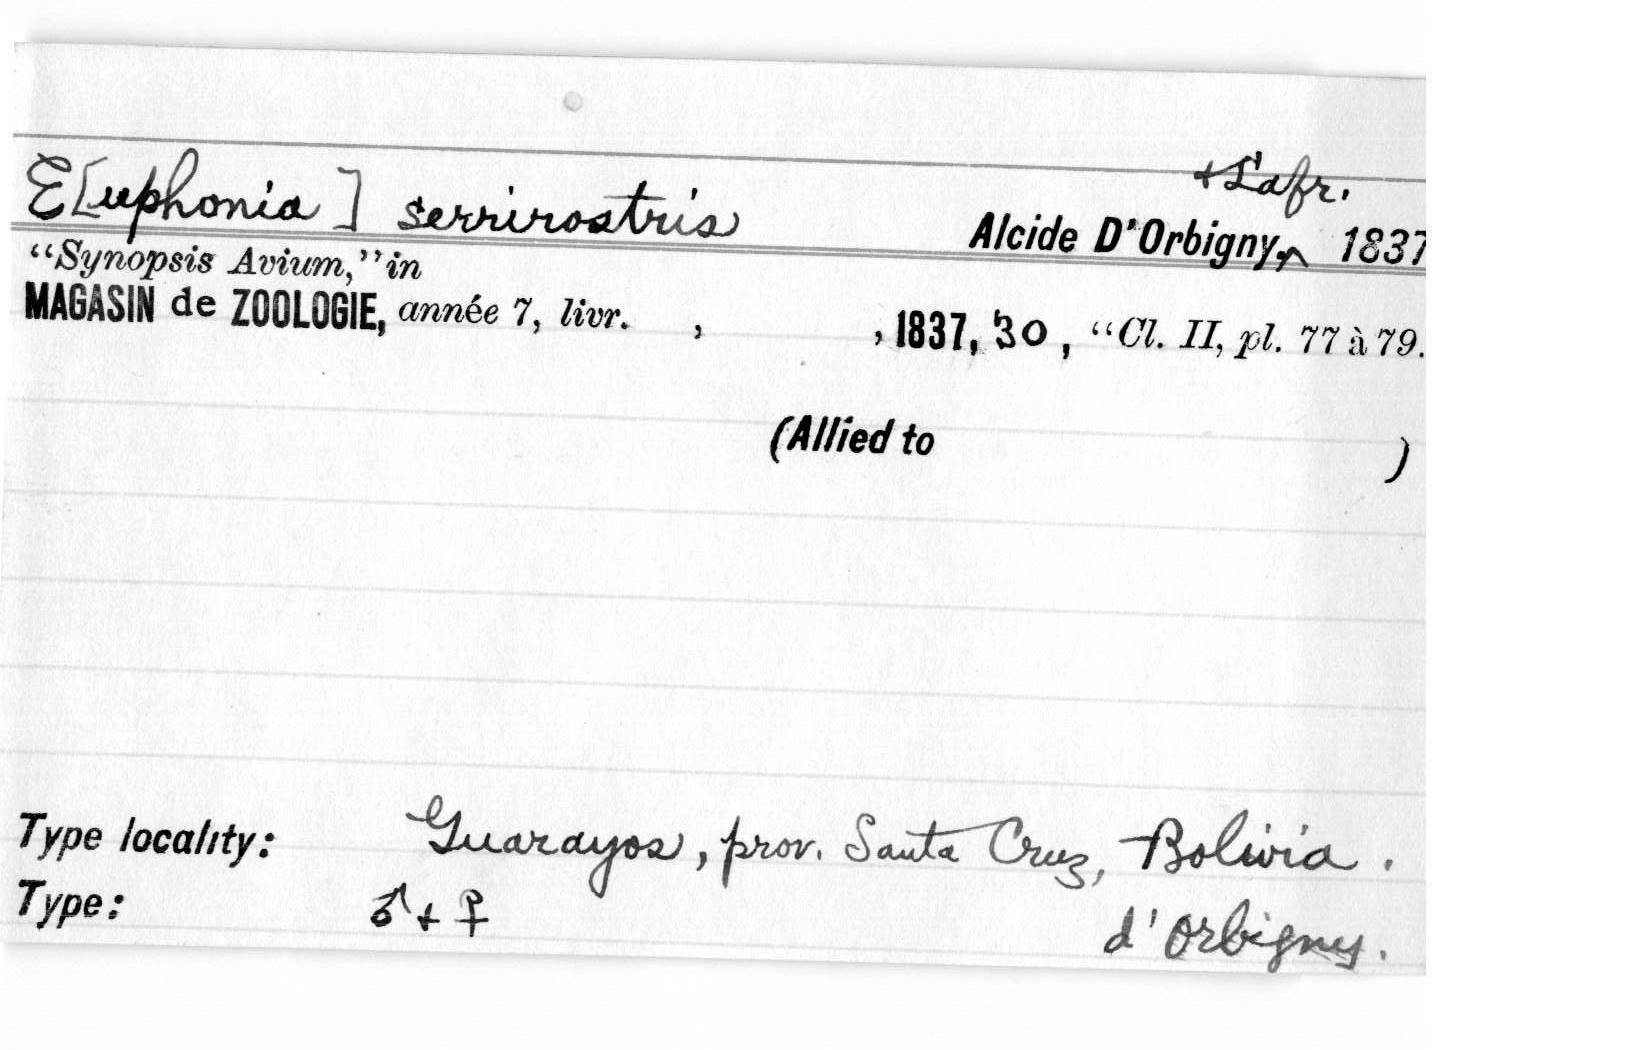 + Lafr.
E[uphonia] serrirostris Alcide D'Orbigny.^ 1837
“Synopsis Avium,” in
MAGASIN de ZOOLOGIE, année 7, livr. , , 1837, 30, “Cl. II, pl. 77 à 79.
(Allied to )
Type locality: Guarayos, prov. Santa Cruz, Bolivia.
Type: ♂ + ♀ d'Orbigny.